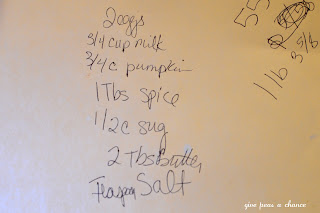 2 eggs
3/4 cup milk
3/4 c pumpkin
1 Tbs spice
1/2 c sug
2 Tbs Butter
Salt
55
3 5/8
1 lb
give peas a chance